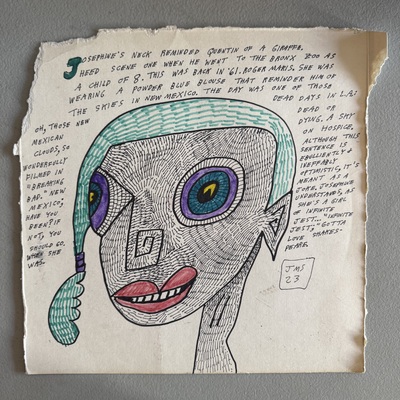 JOSEPHINE'S NECK REMINDED QUENTIN OF A GIRAFFE.
HEED SCENE ONE WHEN HE WENT TO THE BRONX ZOO AS
A CHILD OF 8. THIS WAS BACK IN '61. ROGER MARIS. SHE WAS
WEARING A POWDER BLUE BLOUSE THAT REMINDER HIM OF
THE SKIES IN NEW MEXICO. THE DAY WAS ONE OF THOSE
DEAD DAYS IN L.A:
OH, THOSE NEW
MEXICAN
CLOUDS, SO
WONDERFULLY
DILMED IN
"BREAKING
BAD." NEW
MEXICO;
HAVE YOU
BEEN? IF
NOT, YOU
SHOULD GO.
WHEN SHE
WAS.
DEAD OR
DYING. A SKY
ON HOSPICE.
ALTHOUGH THIS
SENTENCE IS
EBULLIENTLY &
INEFFABLY
OPTIMISTIC, IT'S
MEANT AS A
JOKE. JOSEPHINE
UNDERSTANDS, AS
SHE'S A GIRL
OF INFINITE
JEST... "INFINITE
JEST," GOTTA
LOVE SHAKES-
PEARE.
JMS
23